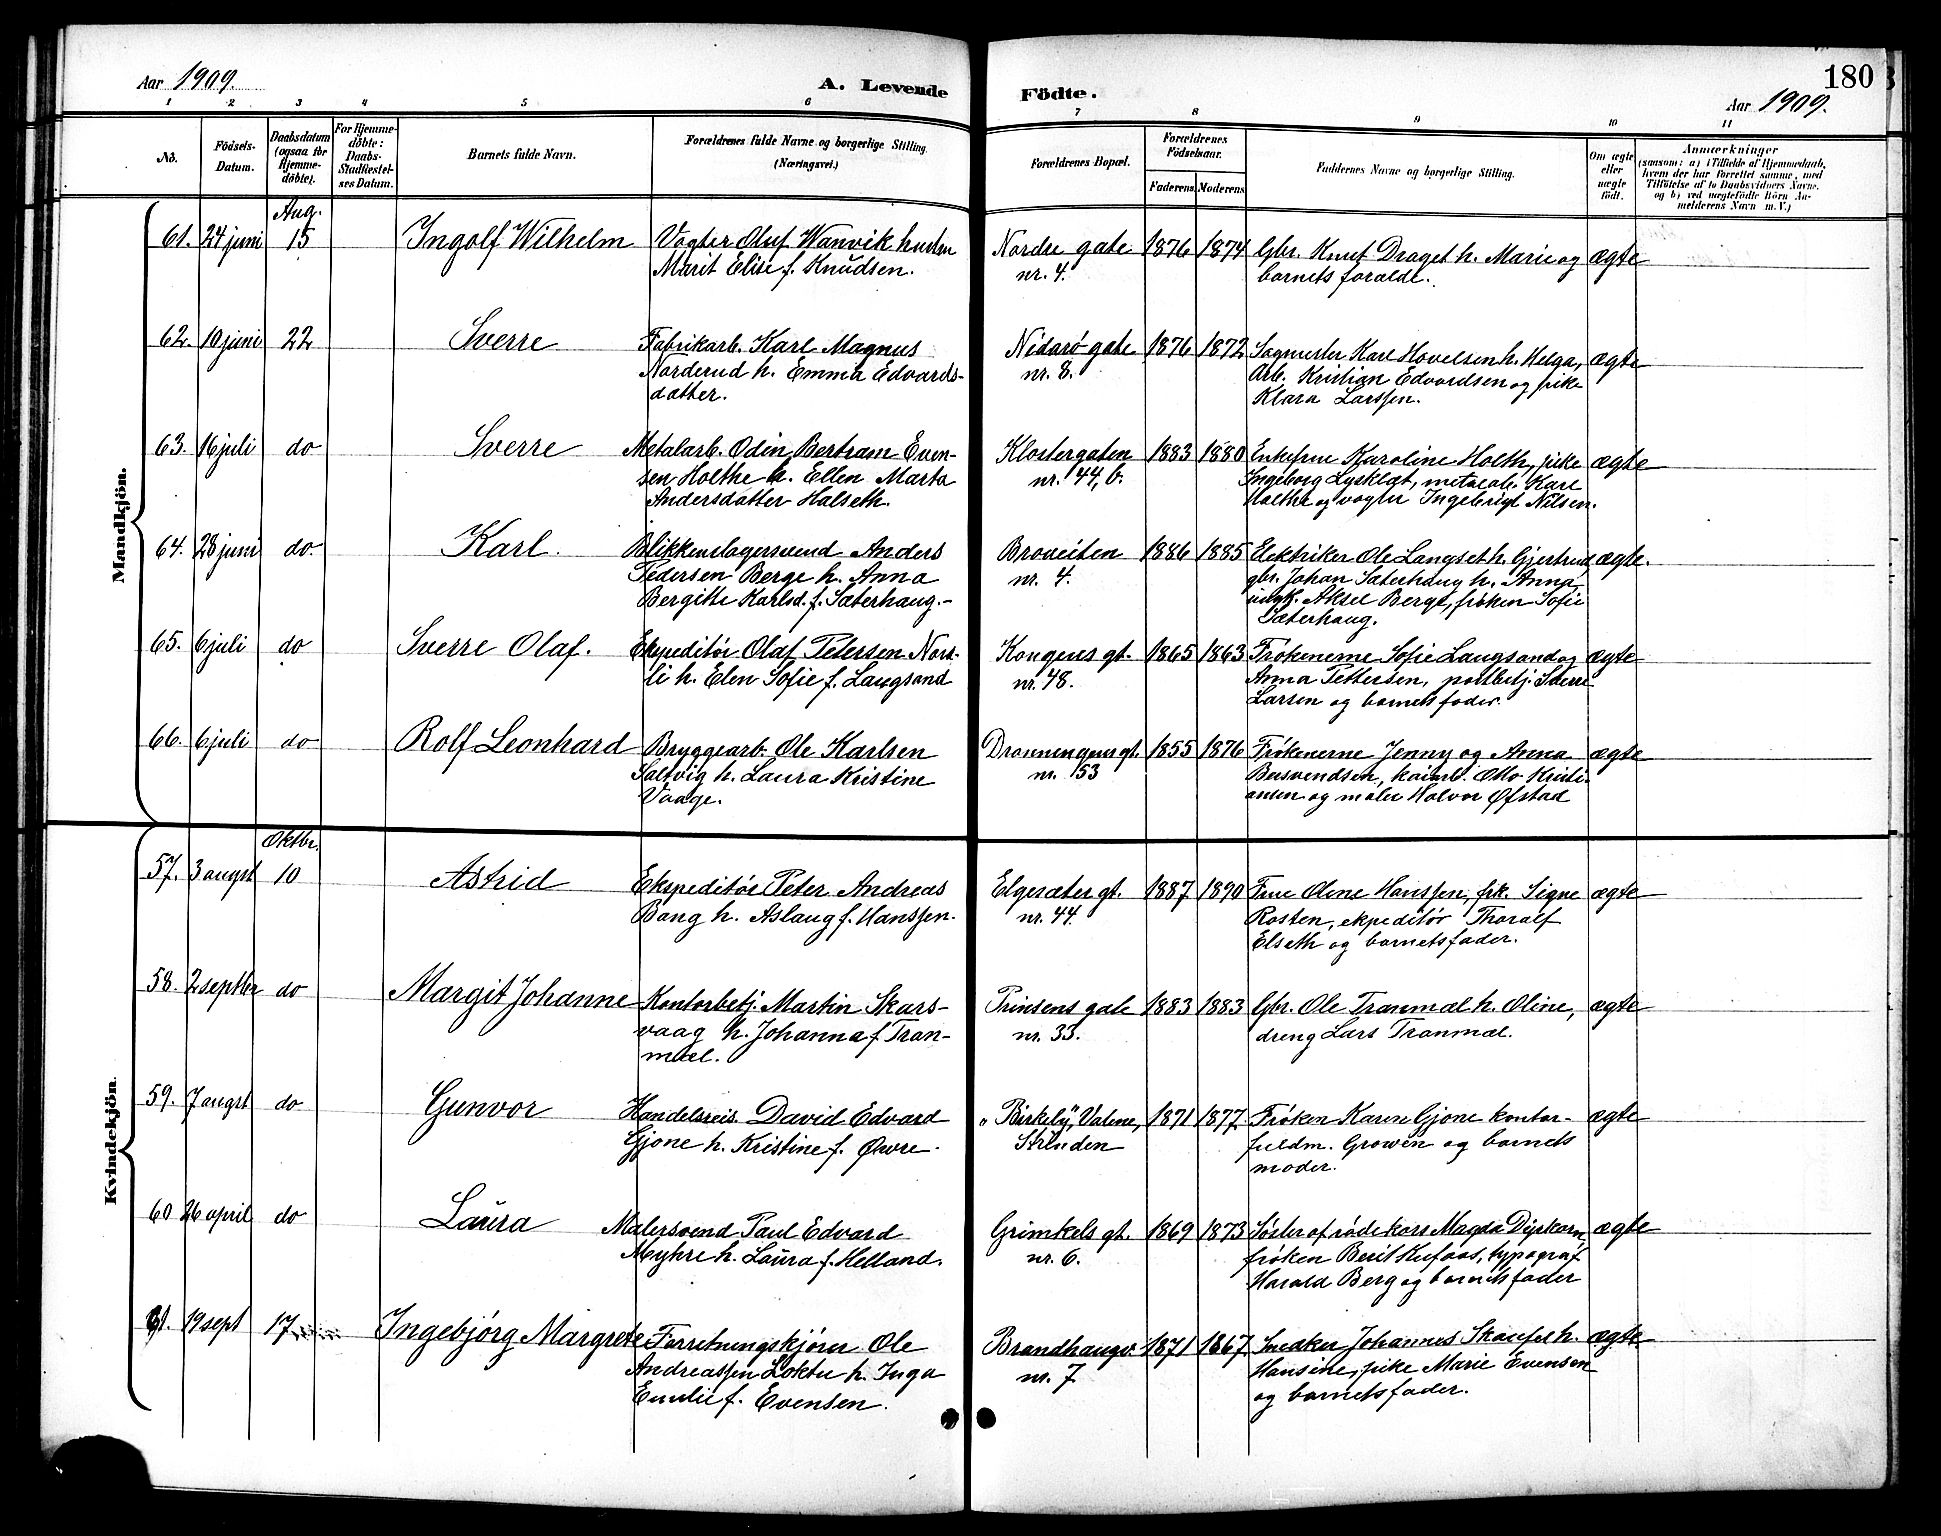 Aar 1909.
A. Levende Födte.
180
Aar 1909.
1 2 3 4 5 6 7 8 9 10 11
No.
Födsels-
Datum.
Daabsdatum
(ogsaa for
Hjemme-
döbte).
For Hjemme-
döbte:
Daabs-
Stadfestel-
ses Datum.
Barnets fulde Navn.
Forældrenes fulde Navne og borgerlige Stilling.
(Næringsvei.)
Forældrenes Bopæl.
Forældrenes
Födselsaar.
Faderens. Moderens.
Faddernes Navne og borgerlige Stilling.
Om ægte
eller
uægte
födt.
Anmærkninger
(saasom: a) i Tilfælde af Hjemmedaab,
hvem der har forrettet samme, med
Tilföielse af to Daabsvidners Navne.
og b) ved uægtefödte Börn An-
melderens Navn m. V.)
Mandkjön.
Aug.
61. 24 juni 15 Ingolf Wilhelm Vogter Oluf Wanvik hustru Nordre gate 1876 1874 Gbr. Knut Draget h. Marie og ægte
Marit Elise f. Knudsen. nr. 4. barnets foralde.
62. 10 juni 22 Sverre Fabrikarb. Karl Magnus Nidarö gate 1876 1872 Sagmester Karl Hovelsen h. Helga, ægte
Norderud h. Emma Edvards- nr. 8. Arb. Kristian Edvardsen og pike
datter. Klara Larssen.
63. 16 juli do Sverre Metalarb. Odin Bertram Even- Klostergaten 1883 1880 Enkefrue Karoline Holth, pike ægte
sen Holthe h. Ellen Marta nr. 44, b. Ingeborg Lysklæt, metalarb. Karl
Andersdatter Halseth. Holthe og vogter Ingebrigt Nilsen.
64. 28 juni do. Karl. Blikkenslagersvend Anders Broveiten 1886 1885 Elektriker Ole Langset h. Gjertrud ægte.
Pedersen Berge h. Anna nr. 4. gbr. Johan Sæterhaug h. Anna
Bergitte Karlsd. f. Sæterhaug.- ungk. Aksel Berge, fröken Sofie
Sæterhaug.
65. 6 juli do Sverre Olaf. Ekspeditör Olaf Petersen Nors- Kongens gt. 1865 1863 Frökenerne Sofie Langsand og ægte
li h. Elen Sofie f. Langsand nr. 48. Anna Pettersen, postbetj. Sverre
Larsen og barnets fader.
66. 6 juli do Rolf Leonhard Bryggearb. Ole Karlsen Dronningens gt. 1855 1876 Frökenerne Jenny og Anna ægte
Saltvig h. Laura Kristine nr. 153 Busvendsen, kaiarb. Otto Kristi-
Vaage. ansen og maler Halvor Øfstad
Kvindekjön.
Oktbr.
57. 3 augst 10 Astrid Ekspeditör Peter Andreas Elgesæter gt. 1887 1890 Frue Oline Hanssen, frk. Signe ægte
Bang h. Aslaug f. Hanssen. nr. 44. Rosten, ekpeditör Thoralf
Elseth og barnets fader.
58. 2 septbr do Margit Johanne Kontorbetj. Martin Skars- Prinsens gate 1883 1883 Gbr. Ole Tranmæl h. Oline, ægte
vaag h. Johanna f. Tran- nr. 33. dreng Lars Tranmæl.
mæl.
59. 7 augst do Gunvor Handelsreis. David Edvard „Birkely", Valene, 1871 1877 Fröken Karen Gjone kontor- ægte
Gjone h. Kristine f. Øwre. Strinden fuldm. Growen og barnets
moder.
60 26 april do Laura Malersvend Paul Edvard Grimkels gt. 1869 1873 Söster af röde kors Magda Dyrkorn, ægte
Myhre h. Laura f. Helland. nr. 6. fröken Berit Kufaas, typograf
Harald Berg og barnets fader
61. 19 sept 17 Ingebjörg Margrete Forretningskjörer Ole Brandhaugv. 1871 1867. Snedker Johannes Skaufel h. ægte
Andreassen Loktu h. Inga nr. 7 Hansine, pike Marie Evensen
Emilie f. Evensen. og barnets fader.